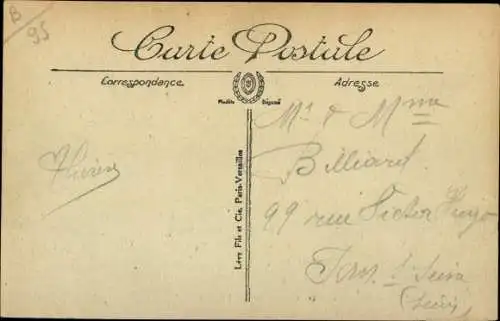 B
95
Carte Postale
Correspondance
Adresse
Modèle Déposé
Lévy Fils et Cie, Paris-Versailles
Mr & Mme
Billiard
99 rue Victor Hugo